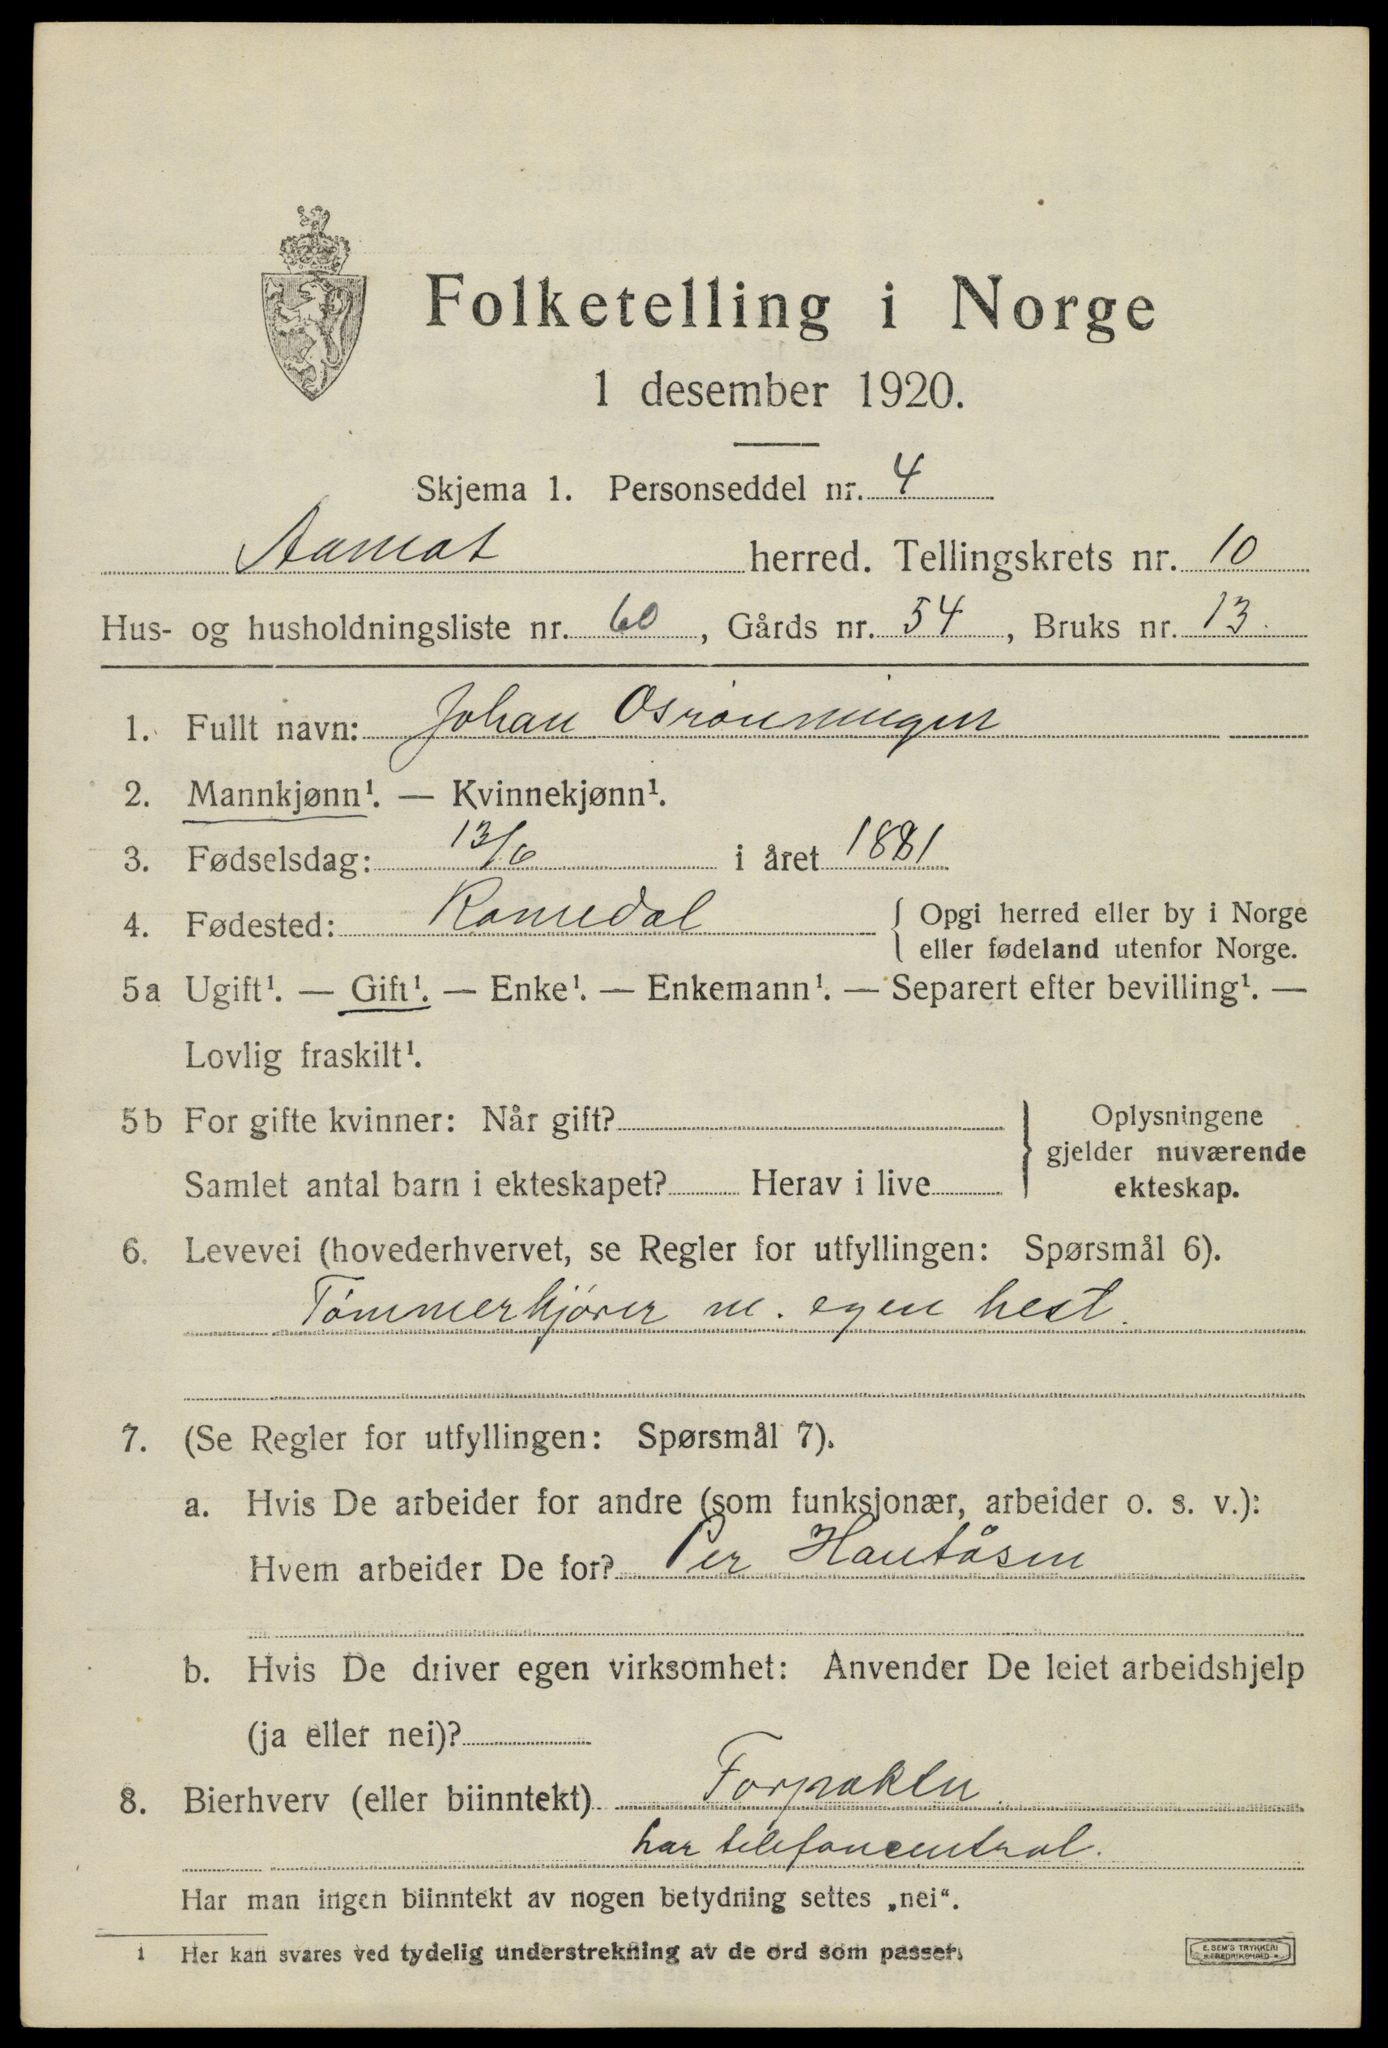 Folketelling i Norge
1 desember 1920.
Skjema 1. Personseddel nr. 4
Aamot herred. Tellingskrets nr. 10
Hus- og husholdningsliste nr. 60, Gårds nr. 54, Bruks nr. 13.
1. Fullt navn: Johan Osrönningen
2. Mannkjønn¹. — Kvinnekjønn¹.
3. Fødselsdag: 13/6 i året 1881
4. Fødested: Romedal { Opgi herred eller by i Norge
eller fødeland utenfor Norge.
5a Ugift¹. — Gift¹. — Enke¹. — Enkemann¹. — Separert efter bevilling¹. —
Lovlig fraskilt¹.
5b For gifte kvinner: Når gift? } Oplysningene
gjelder nuværende
Samlet antal barn i ekteskapet? Herav i live ekteskap.
6. Levevei (hovederhvervet, se Regler for utfyllingen: Spørsmål 6).
Tömmerkjörer m. egen hest.
7. (Se Regler for utfyllingen: Spørsmål 7).
a. Hvis De arbeider for andre (som funksjonær, arbeider o. s. v.):
Hvem arbeider De for? Per Hautåsen
b. Hvis De driver egen virksomhet: Anvender De leiet arbeidshjelp
(ja eller nei)?
8. Bierhverv (eller biinntekt) Forpakter
har telefoncentral.
Har man ingen biinntekt av nogen betydning settes „nei“.
1 Her kan svares ved tydelig understrekning av de ord som passer.
E. SEM'S TRYKKERI
FREDRIKSHALD